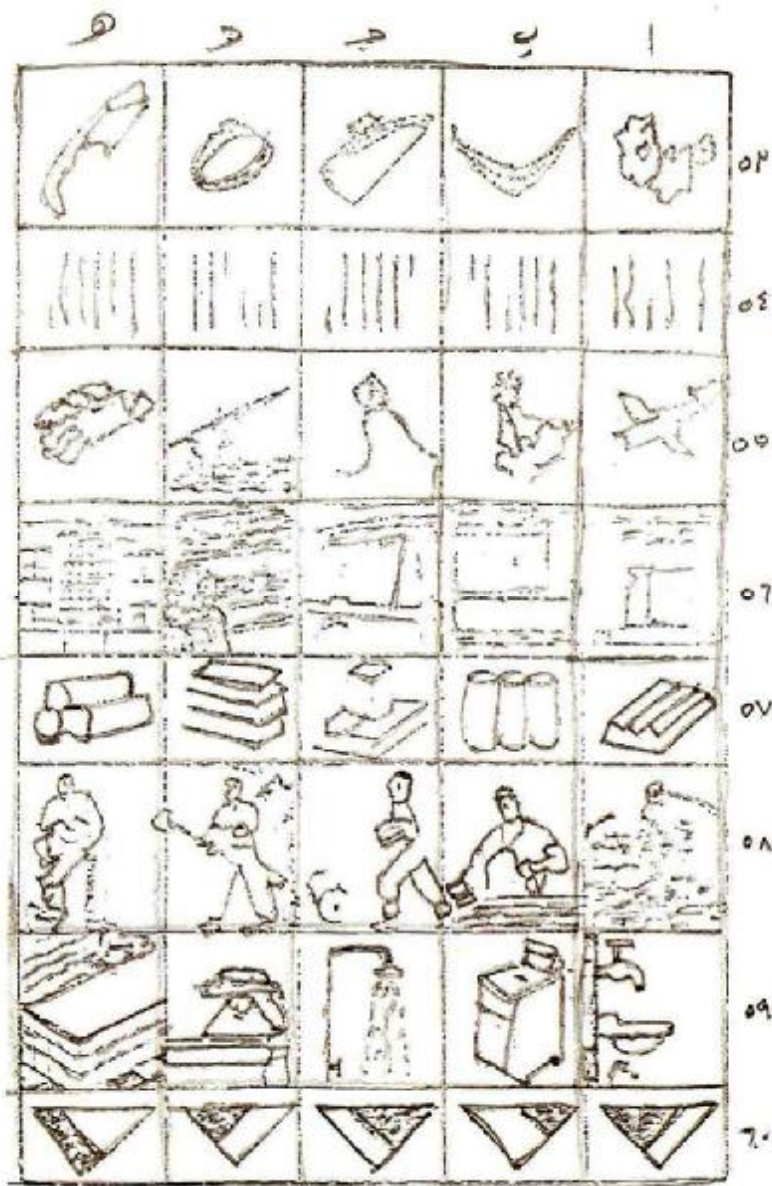 ا ب ج د و
٥٣
٥٤
٥٥
٥٦
٥٧
٥٨
٥٩
٦٠